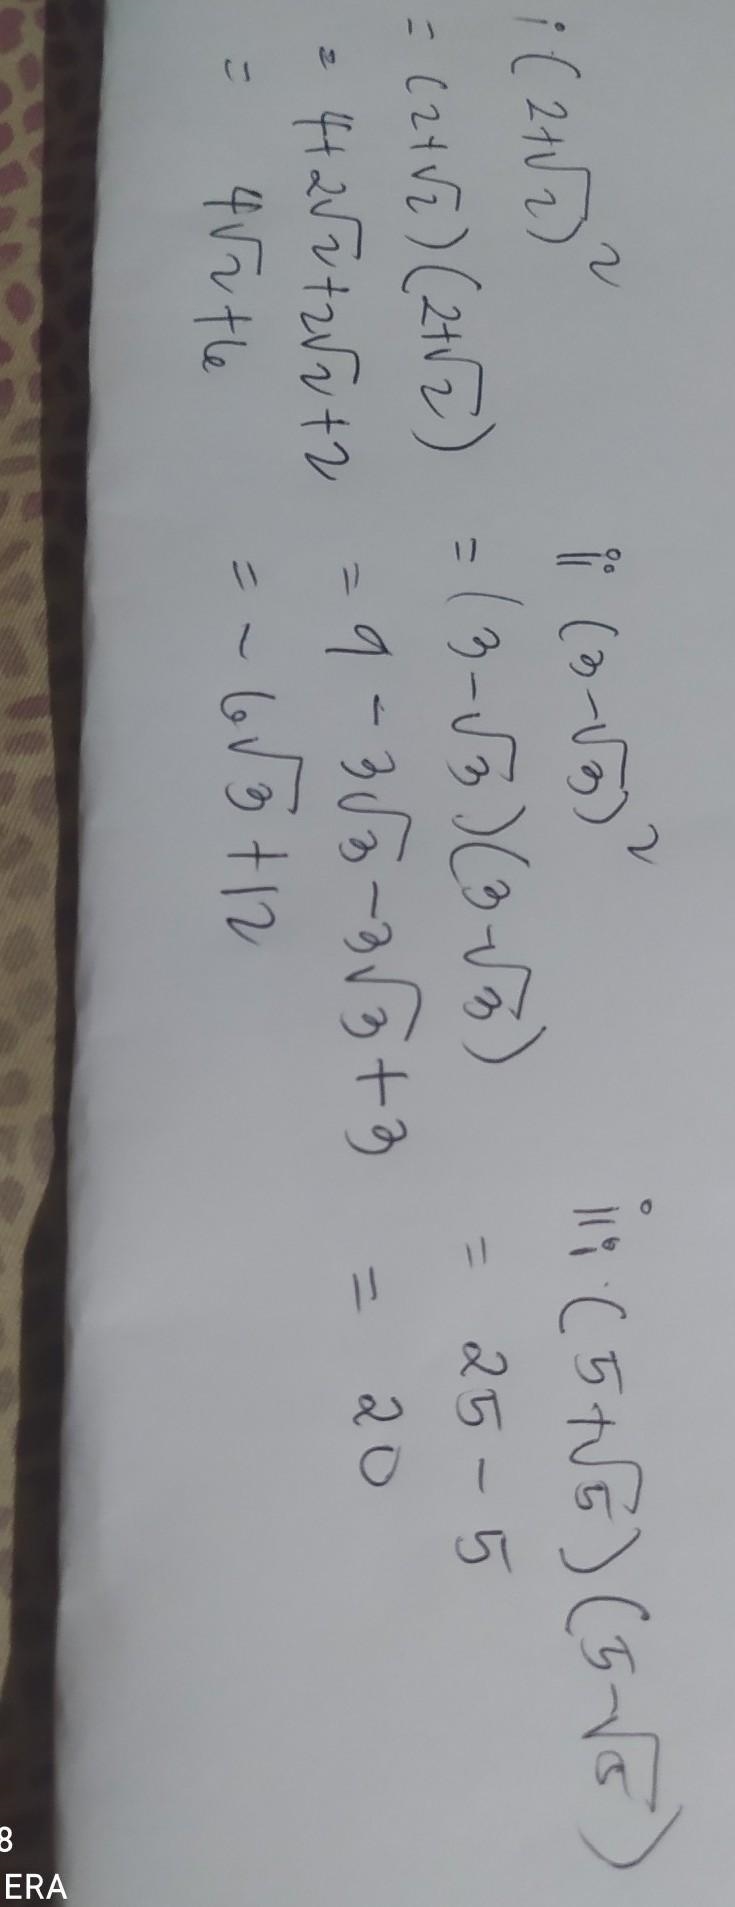 i (2+√2)²
= (2+√2)(2+√2)
= 4+2√2+2√2+2
= 4√2+6
ii (3-√3)²
= (3-√3)(3-√3)
= 9 - 3√3 - 3√3 + 3
= - 6√3 + 12
iii (5+√5)(5-√5)
= 25 - 5
= 20
8
ERA